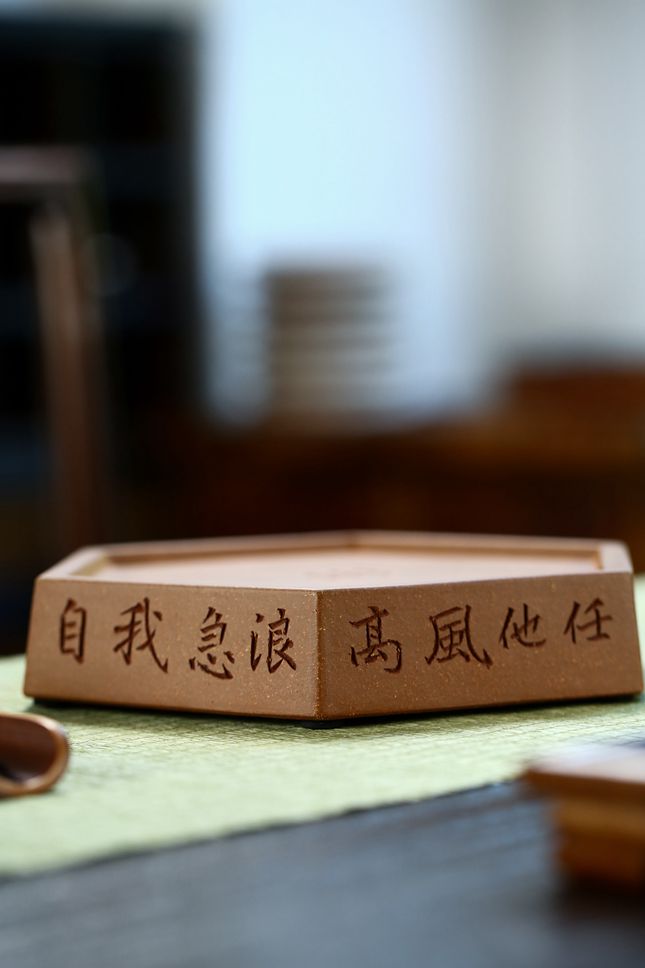 任他風高
浪急我自